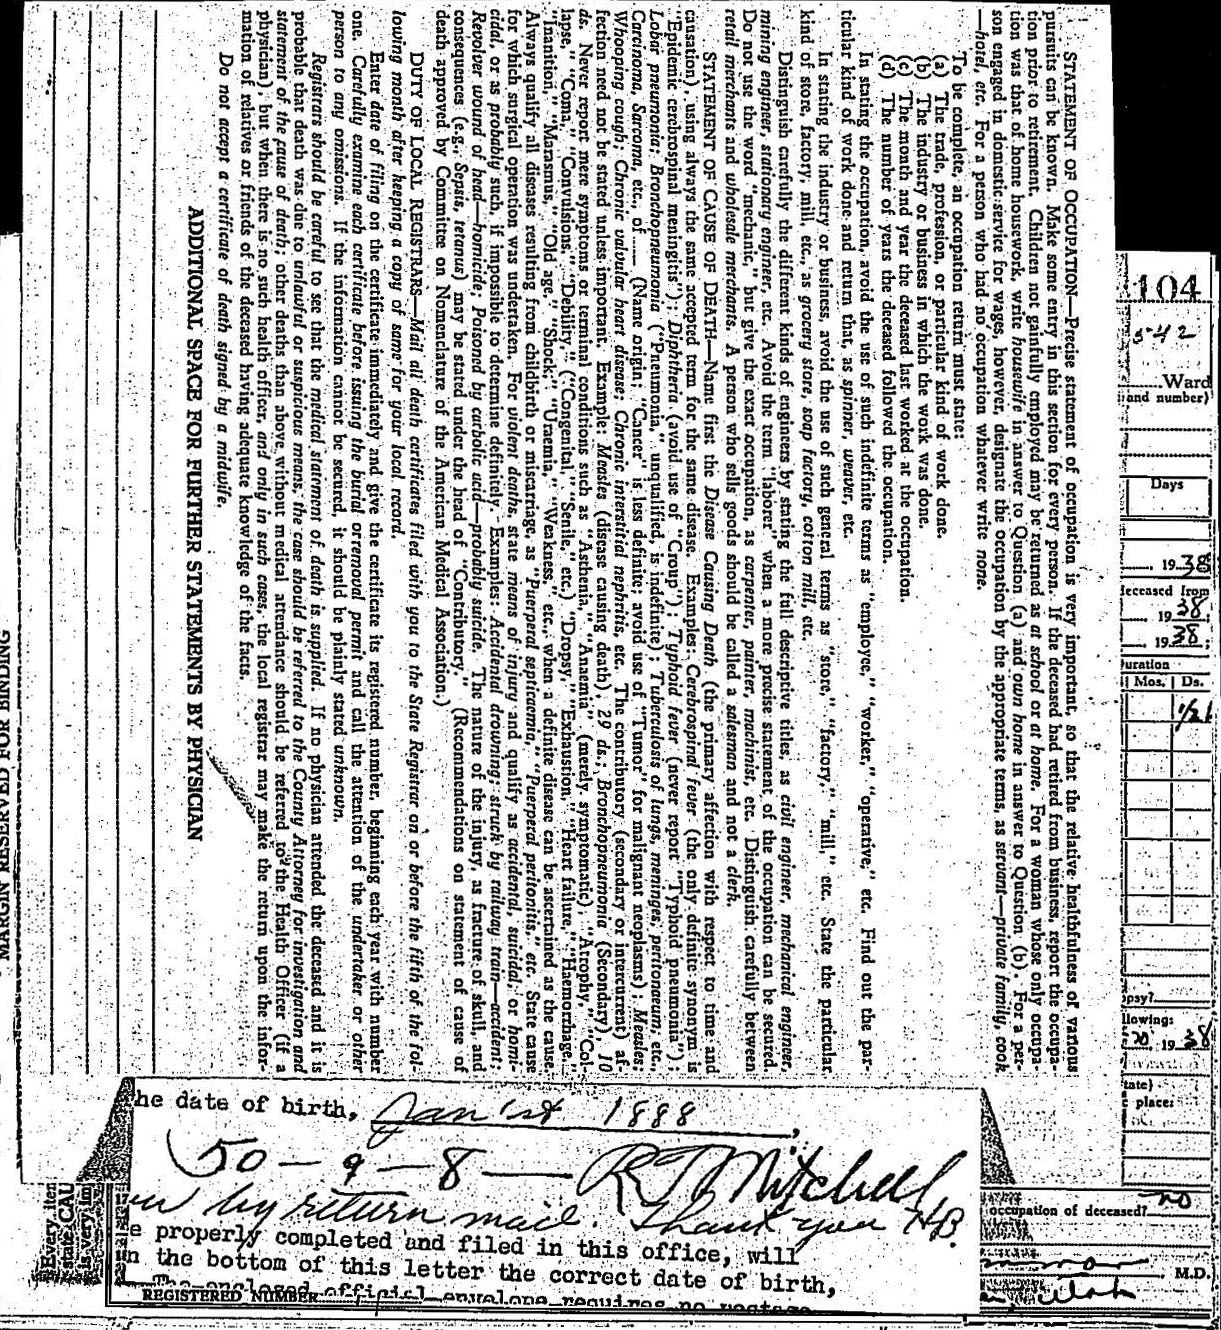 STATEMENT OF OCCUPATION—Precise statement of occupation is very important, so that the relative healthfulness of various
pursuits can be known. Make some entry in this section for every person. If the deceased had retired from business, report the occupa-
tion prior to retirement. Children not gainfully employed may be returned as at school or at home. For a woman whose only occupa-
tion was that of home housework, write housewife in answer to Question (a) and own home in answer to Question (b). For a per-
son engaged in domestic service for wages, however, designate the occupation by the appropriate terms, as servant—private family, cook
—hotel, etc. For a person who had no occupation whatever write none.
To be complete, an occupation return must state:
(a) The trade, profession, or particular kind of work done.
(b) The industry or business in which the work was done.
(c) The month and year the deceased last worked at the occupation.
(d) The number of years the deceased followed the occupation.
In stating the occupation, avoid the use of such indefinite terms as "employee," "worker," "operative," etc. Find out the par-
ticular kind of work done and return that, as spinner, weaver, etc.
In stating the industry or business, avoid the use of such general terms as "store," "factory," "mill," etc. State the particular
kind of store, factory, mill, etc., as grocery store, soap factory, cotton mill, etc.
Distinguish carefully the different kinds of engineers by stating the full descriptive titles, as civil engineer, mechanical engineer,
mining engineer, stationary engineer, etc. Avoid the term "laborer" when a more precise statement of the occupation can be secured.
Do not use the word "mechanic," but give the exact occupation, as carpenter, painter, machinist, etc. Distinguish carefully between
retail merchants and wholesale merchants. A person who sells goods should be called a salesman and not a clerk.
STATEMENT OF CAUSE OF DEATH—Name first the Disease Causing Death (the primary affection with respect to time and
causation), using always the same accepted term for the same disease. Examples: Cerebrospinal fever (the only definite synonym is
"Epidemic cerebrospinal meningitis"); Diphtheria (avoid use of "Croup"); Typhoid fever (never report "Typhoid pneumonia");
Lobar pneumonia; Bronchopneumonia ("Pneumonia," unqualified, is indefinite); Tuberculosis of lungs, meninges, peritonaeum, etc.,
Carcinoma, Sarcoma, etc., of ...... (Name origin; "Cancer" is less definite; avoid use of "Tumor" for malignant neoplasms); Measles;
Whooping cough; Chronic valvular heart disease; Chronic interstitial nephritis, etc. The contributory (secondary or intercurrent) af-
fection need not be stated unless important. Example: Measles (disease causing death), 29 ds.; Bronchopneumonia (Secondary), 10
ds. Never report mere symptoms or terminal conditions such as "Asthenia," "Anaemia" (merely symptomatic), "Atrophy," "Col-
lapse," "Coma," "Convulsions," "Debility," ("Congenital," "Senile," etc.) "Dropsy," "Exhaustion," "Heart failure," "Haemorrhage,"
"Inanition," "Marasmus," "Old age," "Shock," "Uraemia," "Weakness," etc., when a definite disease can be ascertained as the cause.
Always qualify all diseases resulting from childbirth or miscarriage, as "Puerperal septicaemia," "Puerperal peritonitis," etc. State cause
for which surgical operation was undertaken. For violent deaths, state means of injury and qualify as accidental, suicidal, or homi-
cidal, or as probably such, if impossible to determine definitely. Examples: Accidental drowning; struck by railway train—accident;
Revolver wound of head—homicide; Poisoned by carbolic acid—probably suicide. The nature of the injury, as fracture of skull, and
consequences (e.g., Sepsis, tetanus) may be stated under the head of "Contributory." (Recommendations on statement of cause of
death approved by Committee on Nomenclature of the American Medical Association.)
DUTY OF LOCAL REGISTRARS—Mail all death certificates filed with you to the State Registrar on or before the fifth of the fol-
lowing month after keeping a copy of same for your local record.
Enter date of filing on the certificate immediately and give the certificate its registered number, beginning each year with number
one. Carefully examine each certificate before issuing the burial or removal permit and call the attention of the undertaker or other
person to any omissions. If the information cannot be secured, it should be plainly stated unknown.
Registrars should be careful to see that the medical statement of death is supplied. If no physician attended the deceased and it is
probable that death was due to unlawful or suspicious means, the case should be referred to the County Attorney for investigation and
statement of the cause of death; other deaths than above, without medical attendance should be referred to the Health Officer (if a
physician), but when there is no such health officer, and only in such cases, the local registrar may make the return upon the infor-
mation of relatives or friends of the deceased having adequate knowledge of the facts.
Do not accept a certificate of death signed by a midwife.
ADDITIONAL SPACE FOR FURTHER STATEMENTS BY PHYSICIAN
MARGIN RESERVED FOR BINDING
104
542
Ward
and number)
Days
1938
deceased from
1938
1938:
Duration
Mos. Ds.
1/21
opsy?
llowing:
20, 1938
tate)
place:
occupation of deceased? no
M.D.
Utah
he date of birth, Jan 1st 1888,
50-9-8— R T Mitchell,
by return mail. Thank you HB.
e properly completed and filed in this office, will
n the bottom of this letter the correct date of birth,
The enclosed official envelope requires no postage
REGISTERED NUMBER
Every item
state CAU
is very imp